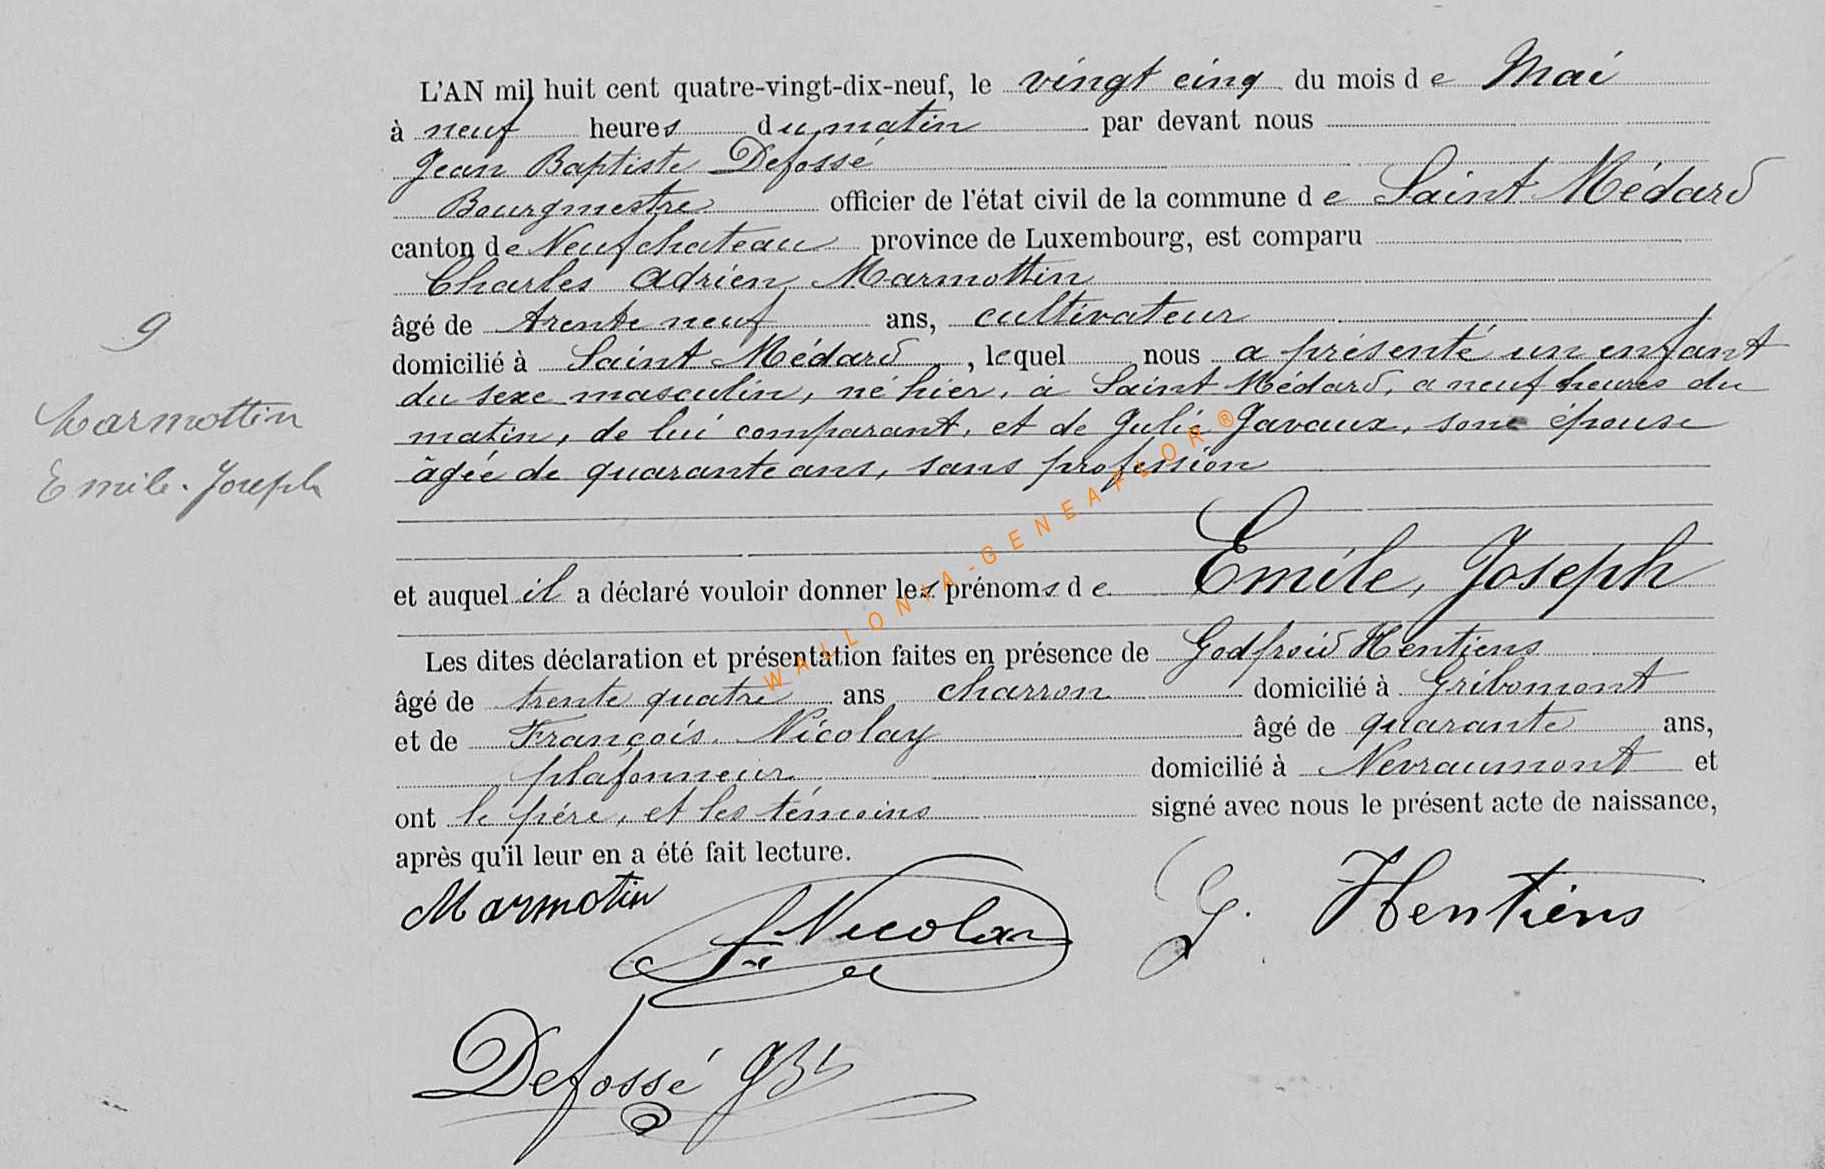 L'AN mil huit cent quatre-vingt-dix-neuf, le vingt cinq du mois de Mai
à neuf heures du matin par devant nous
Jean Baptiste Defossé
Bourgmestre officier de l'état civil de la commune de Saint Médard
canton de Neufchateau province de Luxembourg, est comparu
Charles Adrien Marmottin
âgé de trente neuf ans, cultivateur
domicilié à Saint Médard, lequel nous a présenté un enfant
du sexe masculin, né hier, à Saint Médard, a neuf heures du
matin, de lui comparant, et de Julie Gavaux, son épouse
âgée de quarante ans, sans profession
et auquel il a déclaré vouloir donner les prénoms de Emile, Joseph
Les dites déclaration et présentation faites en présence de Godfroid Hentiens
âgé de trente quatre ans charron domicilié à Gribomont
et de François Nicolay âgé de quarante ans,
plafonneur domicilié à Nevraumont et
ont le père, et les témoins signé avec nous le présent acte de naissance,
après qu'il leur en a été fait lecture.
9
Marmottin
Emile-Joseph
Marmotin
F. Nicolay
G. Hentiens
Defossé JBt
WALLONIA-GENEAFLOR®